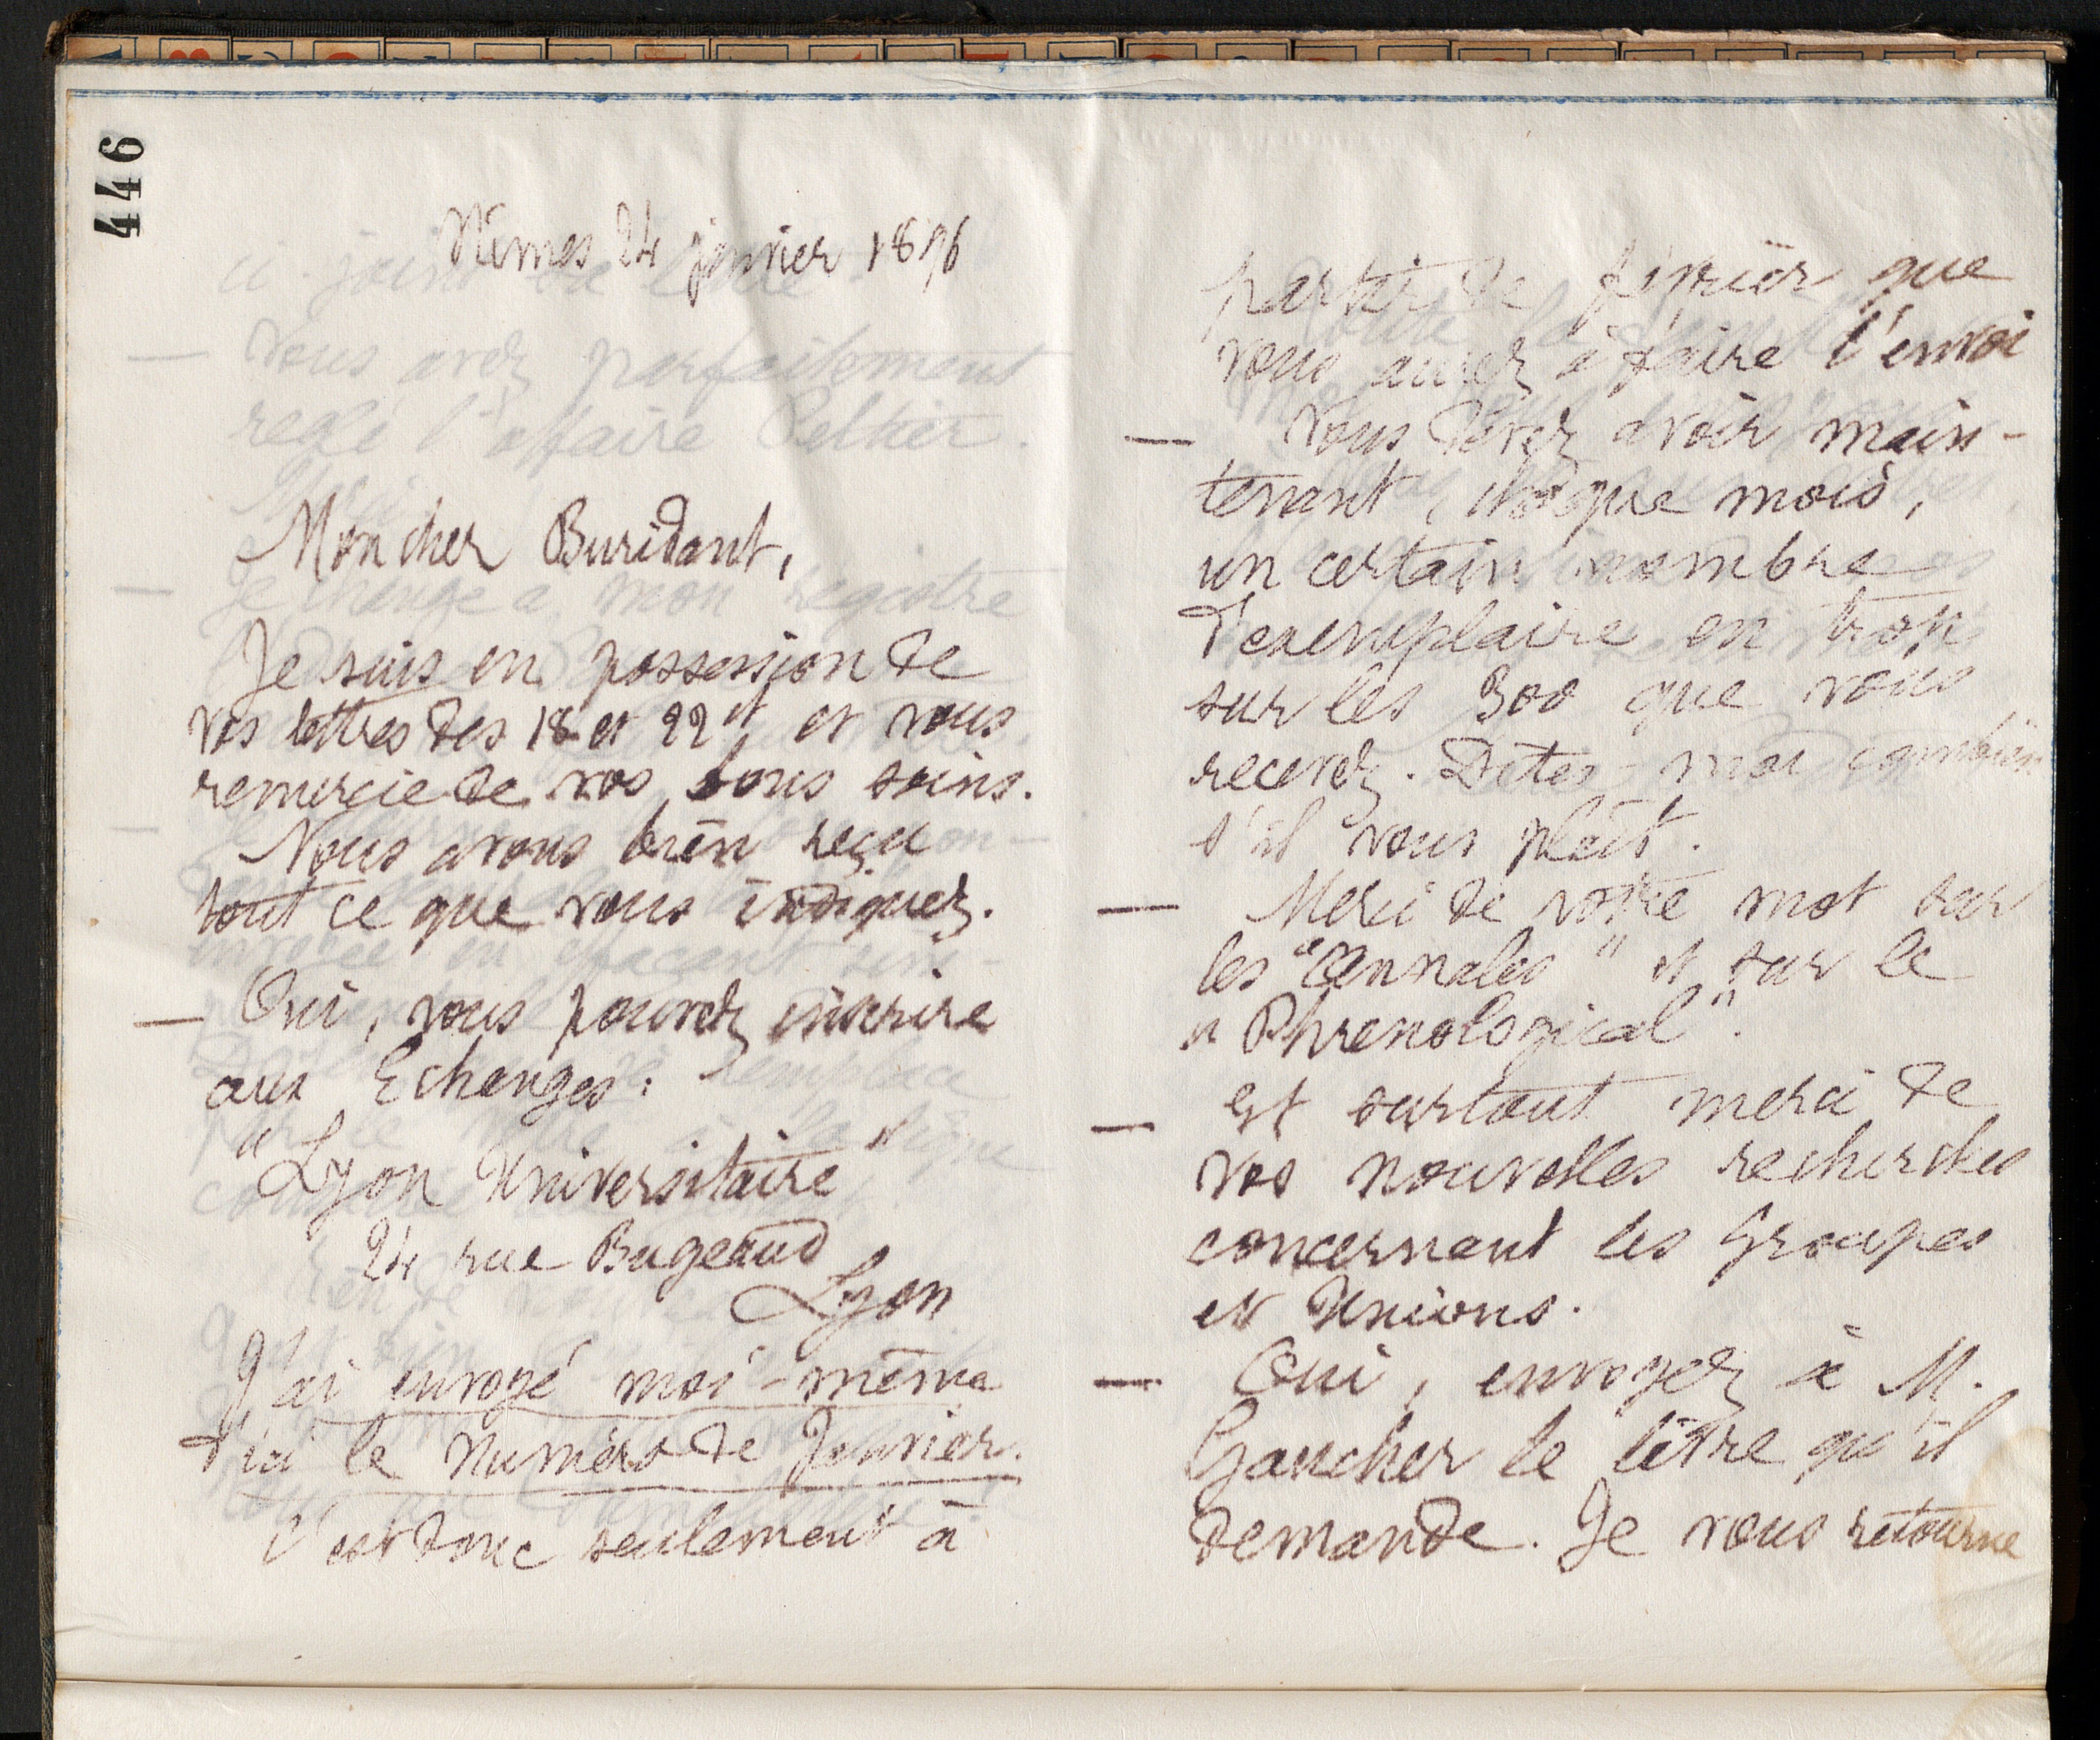 446
Nîmes 24 janvier 1896
Mon cher Buridant,
Je suis en possession de
vos lettres des 18 et 22 ct et vous
remercie de vos bons soins.
Nous avons bien reçu
tout ce que vous indiquez.
— Oui, vous pouvez inscrire
aux Echanges:
"Lyon Universitaire"
24 rue Bugeaud
Lyon
J'ai envoyé moi-même
d'ici le Numéro de Janvier.
C'est donc seulement à
partir de février que
vous aurez à faire l'envoi
— Vous devez avoir main-
tenant, chaque mois,
un certain nombre
d'exemplaire en trop
sur les 300 que vous
recevez. Dites-moi combien
s'il vous plaît.
— Merci de votre mot sur
les "Annales" et sur le
"Phrenological".
— Et surtout merci de
vos nouvelles recherches
concernant les Groupes
et Unions.
— Oui, envoyez à M.
Gaucher le titre qu'il
demande. Je vous retourne